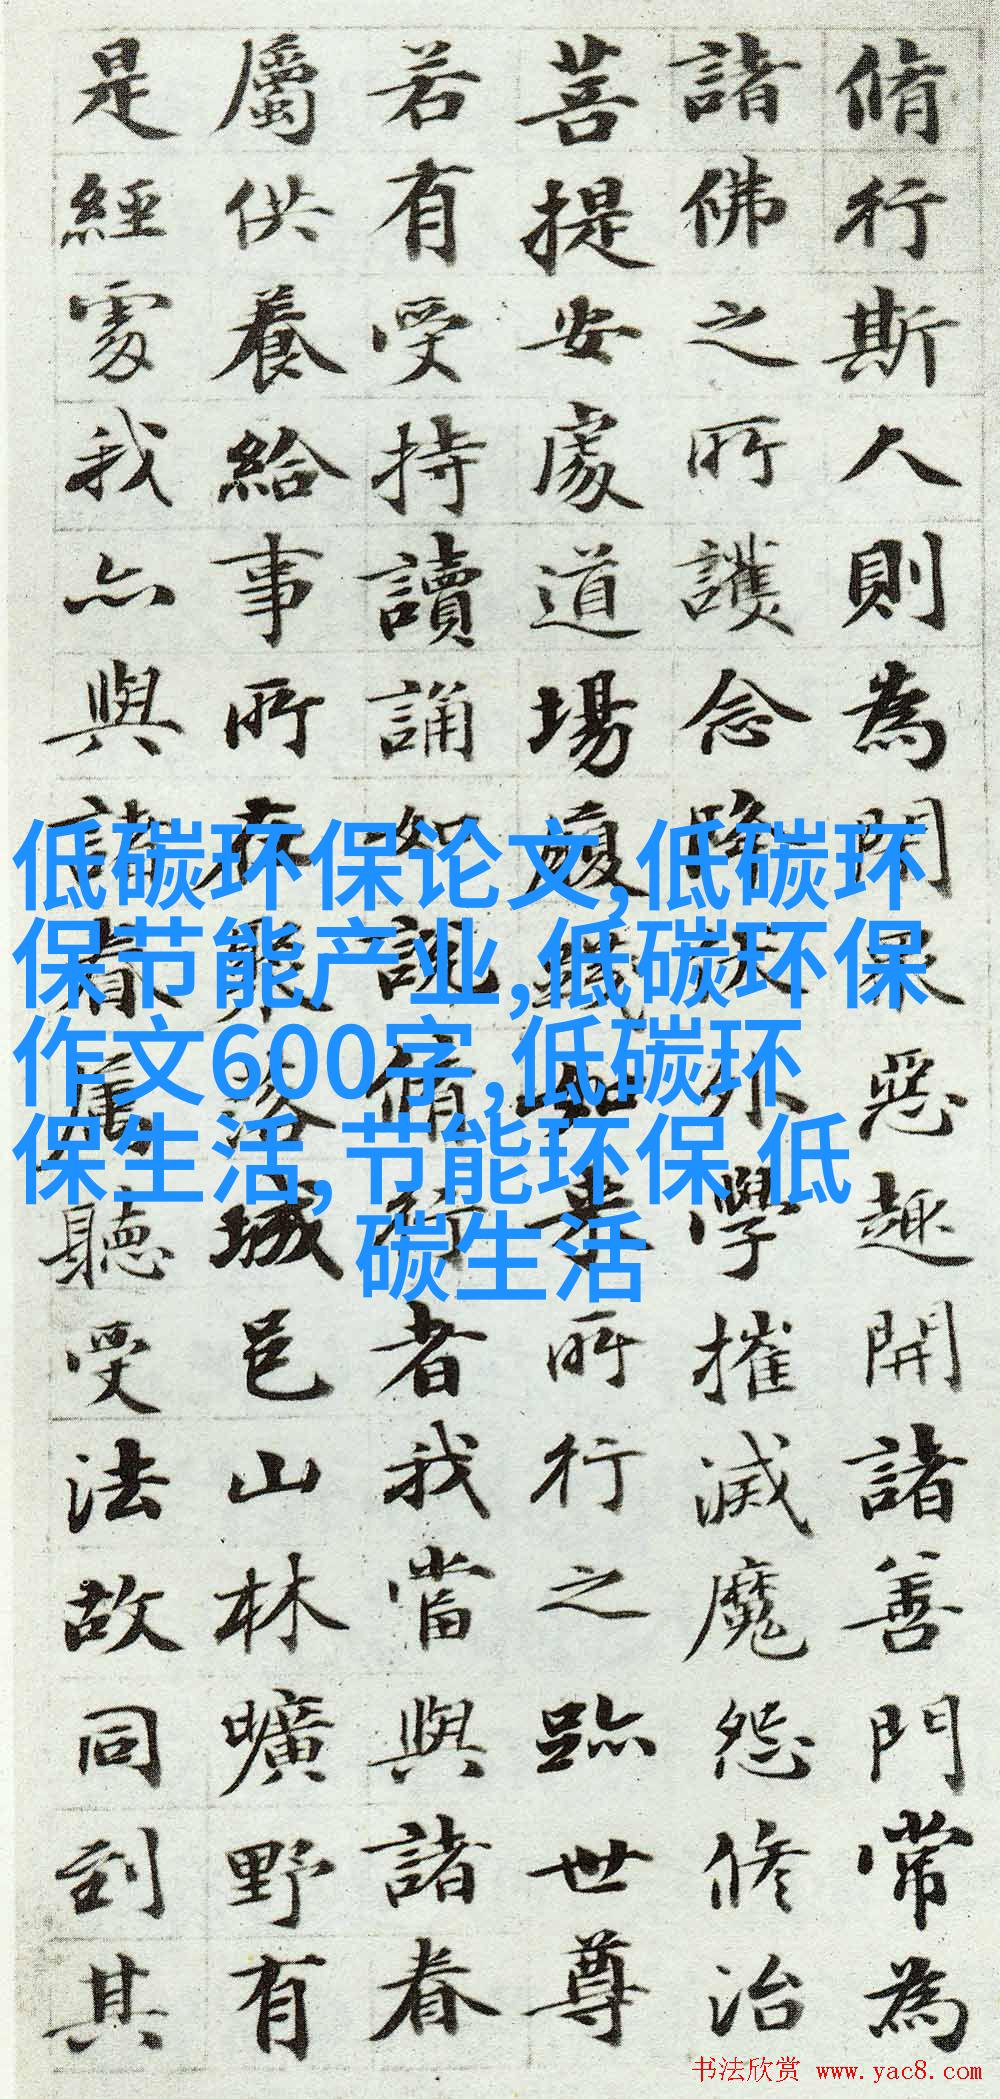 脩行斯人則為閉眾惡趣開諸善門常為
諸佛之所護念降伏外學摧滅魔怨修治
菩提安處道場履踐如來所行之跡世尊
若有受持讀誦如說脩行者我當與諸眷
屬供養給事所在聚落城邑山林曠野有
是經處我亦與諸眷屬聽受法故同到其
低碳环保论文,低碳环
保节能产业,低碳环保
作文600字,低碳环
保生活,节能环保 低
碳生活
书法欣赏 www.yac8.com